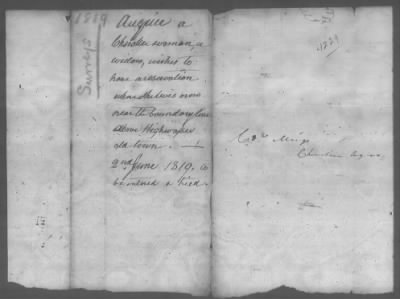 1819
Surveys
a
Cherokee woman, a
widow, wishes to
have a reservation
where she lives now
near the boundary line
above Highwassee
old town. —
2nd June 1819. to
be entered a
1229
Col. Meigs
Cherokee Agency